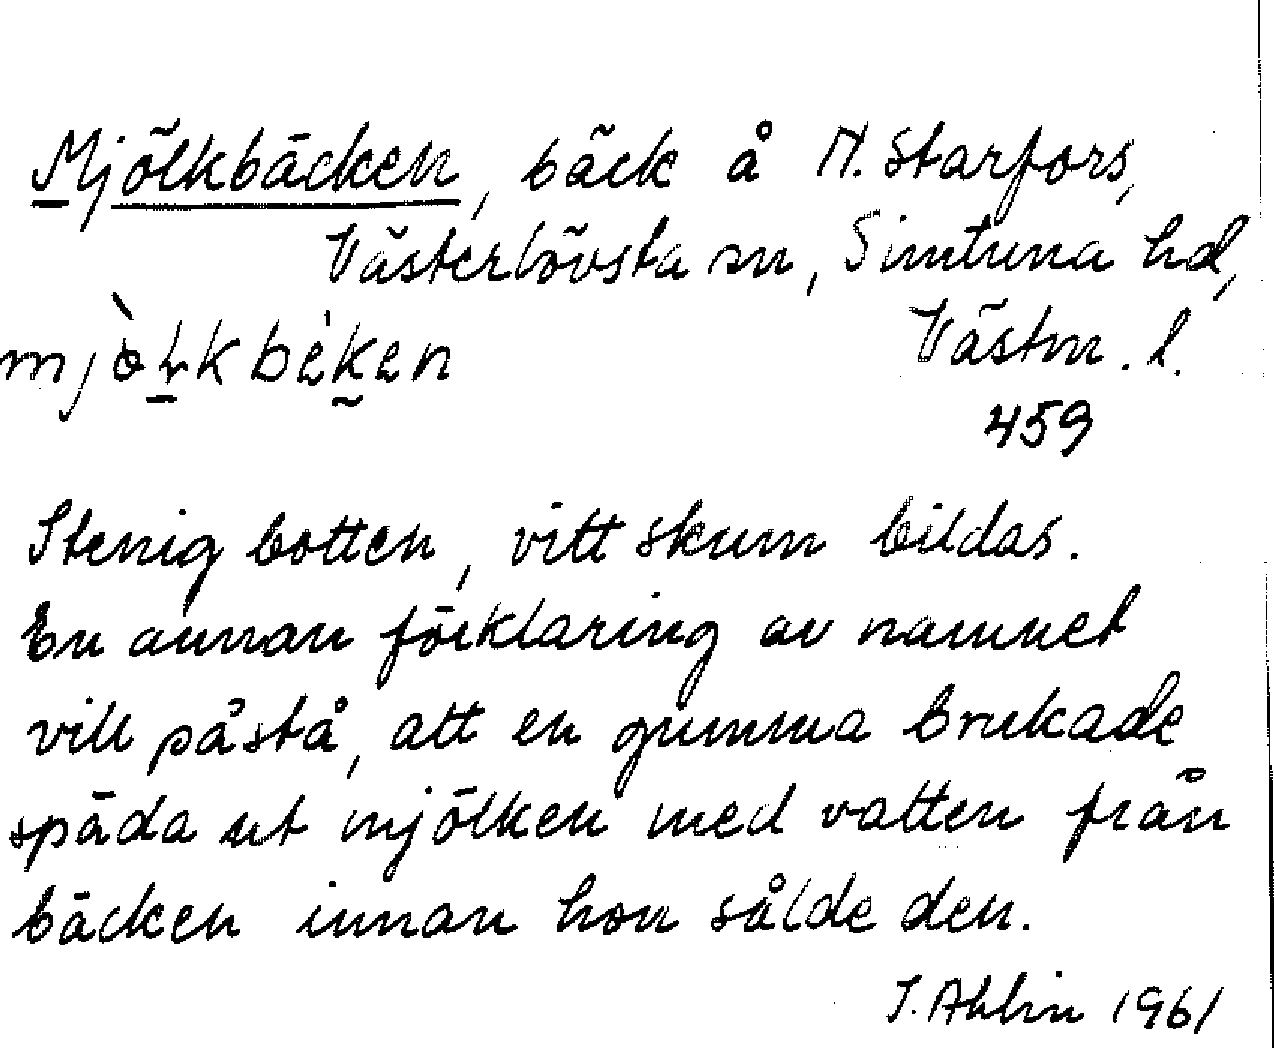 Mjölkbäcken, bäck å N. Starfors,
Västerlövsta sn, Simtuna hd,
Västm. l.
mjòlkbèken
459
Stenig botten, vitt skum bildas.
En annan förklaring av namnet
vill påstå, att en gumma brukade
späda ut mjölken med vatten från
bäcken innan hon sålde den.
J. Ahlin 1961